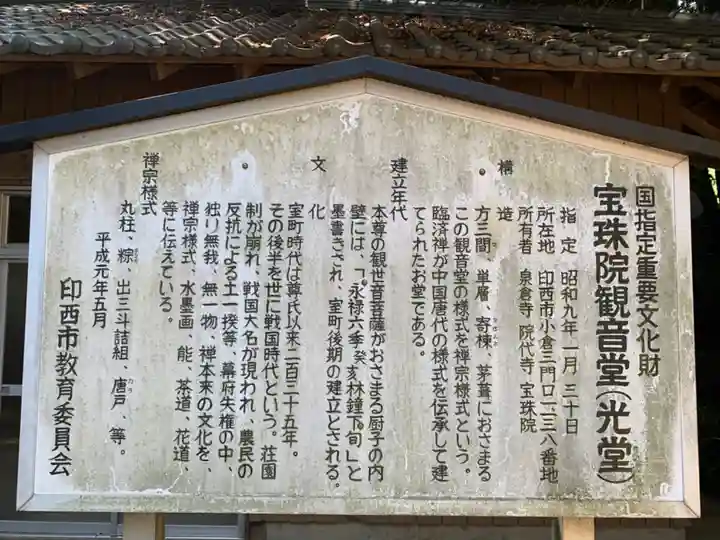 国指定重要文化財
宝珠院観音堂(光堂)
指定 昭和九年一月三十日
所在地 印西市小倉三門口一、三八番地
所有者 泉倉寺 院代寺 宝珠院
構造
方三間、単層、寄棟、茅葺におさまる
この観音堂の様式を禅宗様式という。
臨済禅が中国唐代の様式を伝承して建
てられたお堂である。
建立年代
本尊の観世音菩薩がおさまる厨子の内
壁には、「永禄六季癸亥林鐘下旬」と
墨書きされ、室町後期の建立とされる。
文化
室町時代は尊氏以来二百三十五年。
その後半を世に戦国時代という。荘園
制が崩れ、戦国大名が現われ、農民の
反抗による土一揆等、幕府失権の中、
独り無我、無一物、禅本来の文化を、
禅宗様式、水墨画、能、茶道、花道、
等に伝えている。
禅宗様式
丸柱、粽、出三斗詰組、唐戸、等。
平成元年五月
印西市教育委員会